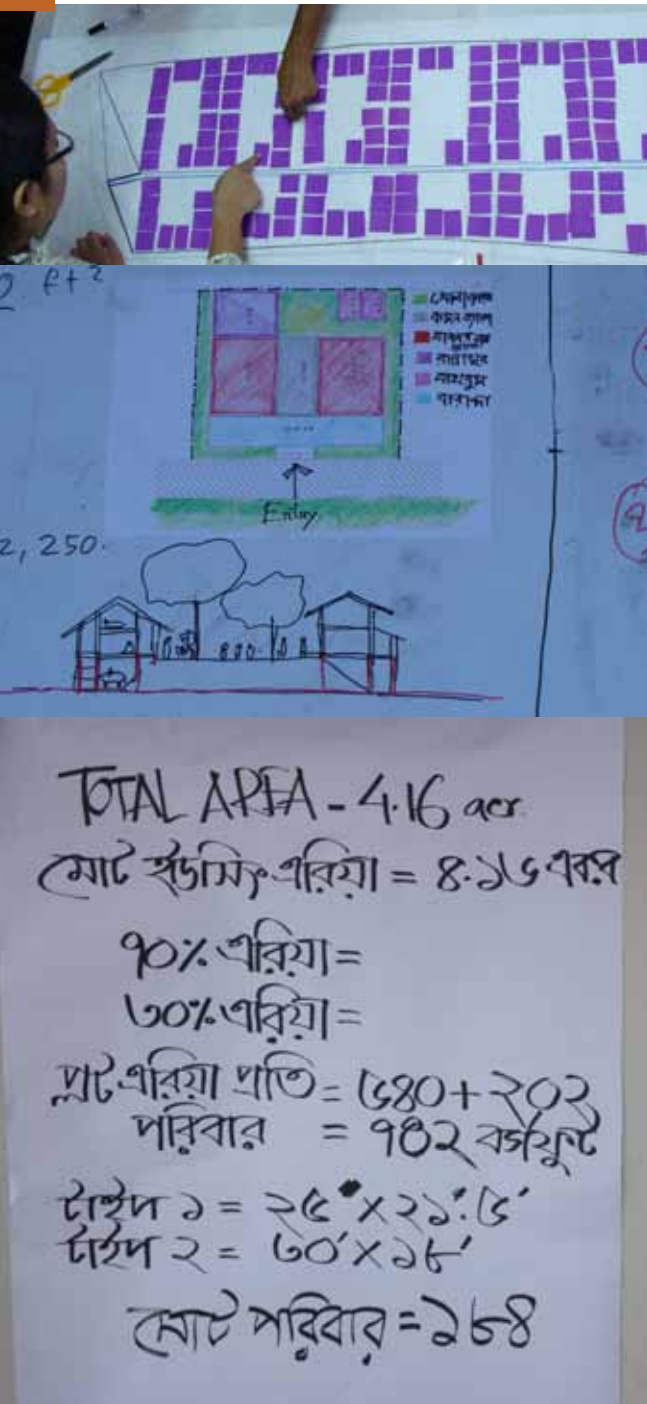 ft2
রান্নাঘর
বাথরুম
বারান্দা
Entry
2, 250.
TOTAL AREA - 4.16 acr.
মোট হাউসিং এরিয়া = ৪.১৬ একর
৭০% এরিয়া =
৩০% এরিয়া =
প্লট এরিয়া প্রতি = ৫৪০+২০২
পরিবার = ৭৪২ বর্গফুট
টাইপ ১ = ২৫' × ২১'.৫'
টাইপ ২ = ৩০' × ১৮'
মোট পরিবার = ১৮৪